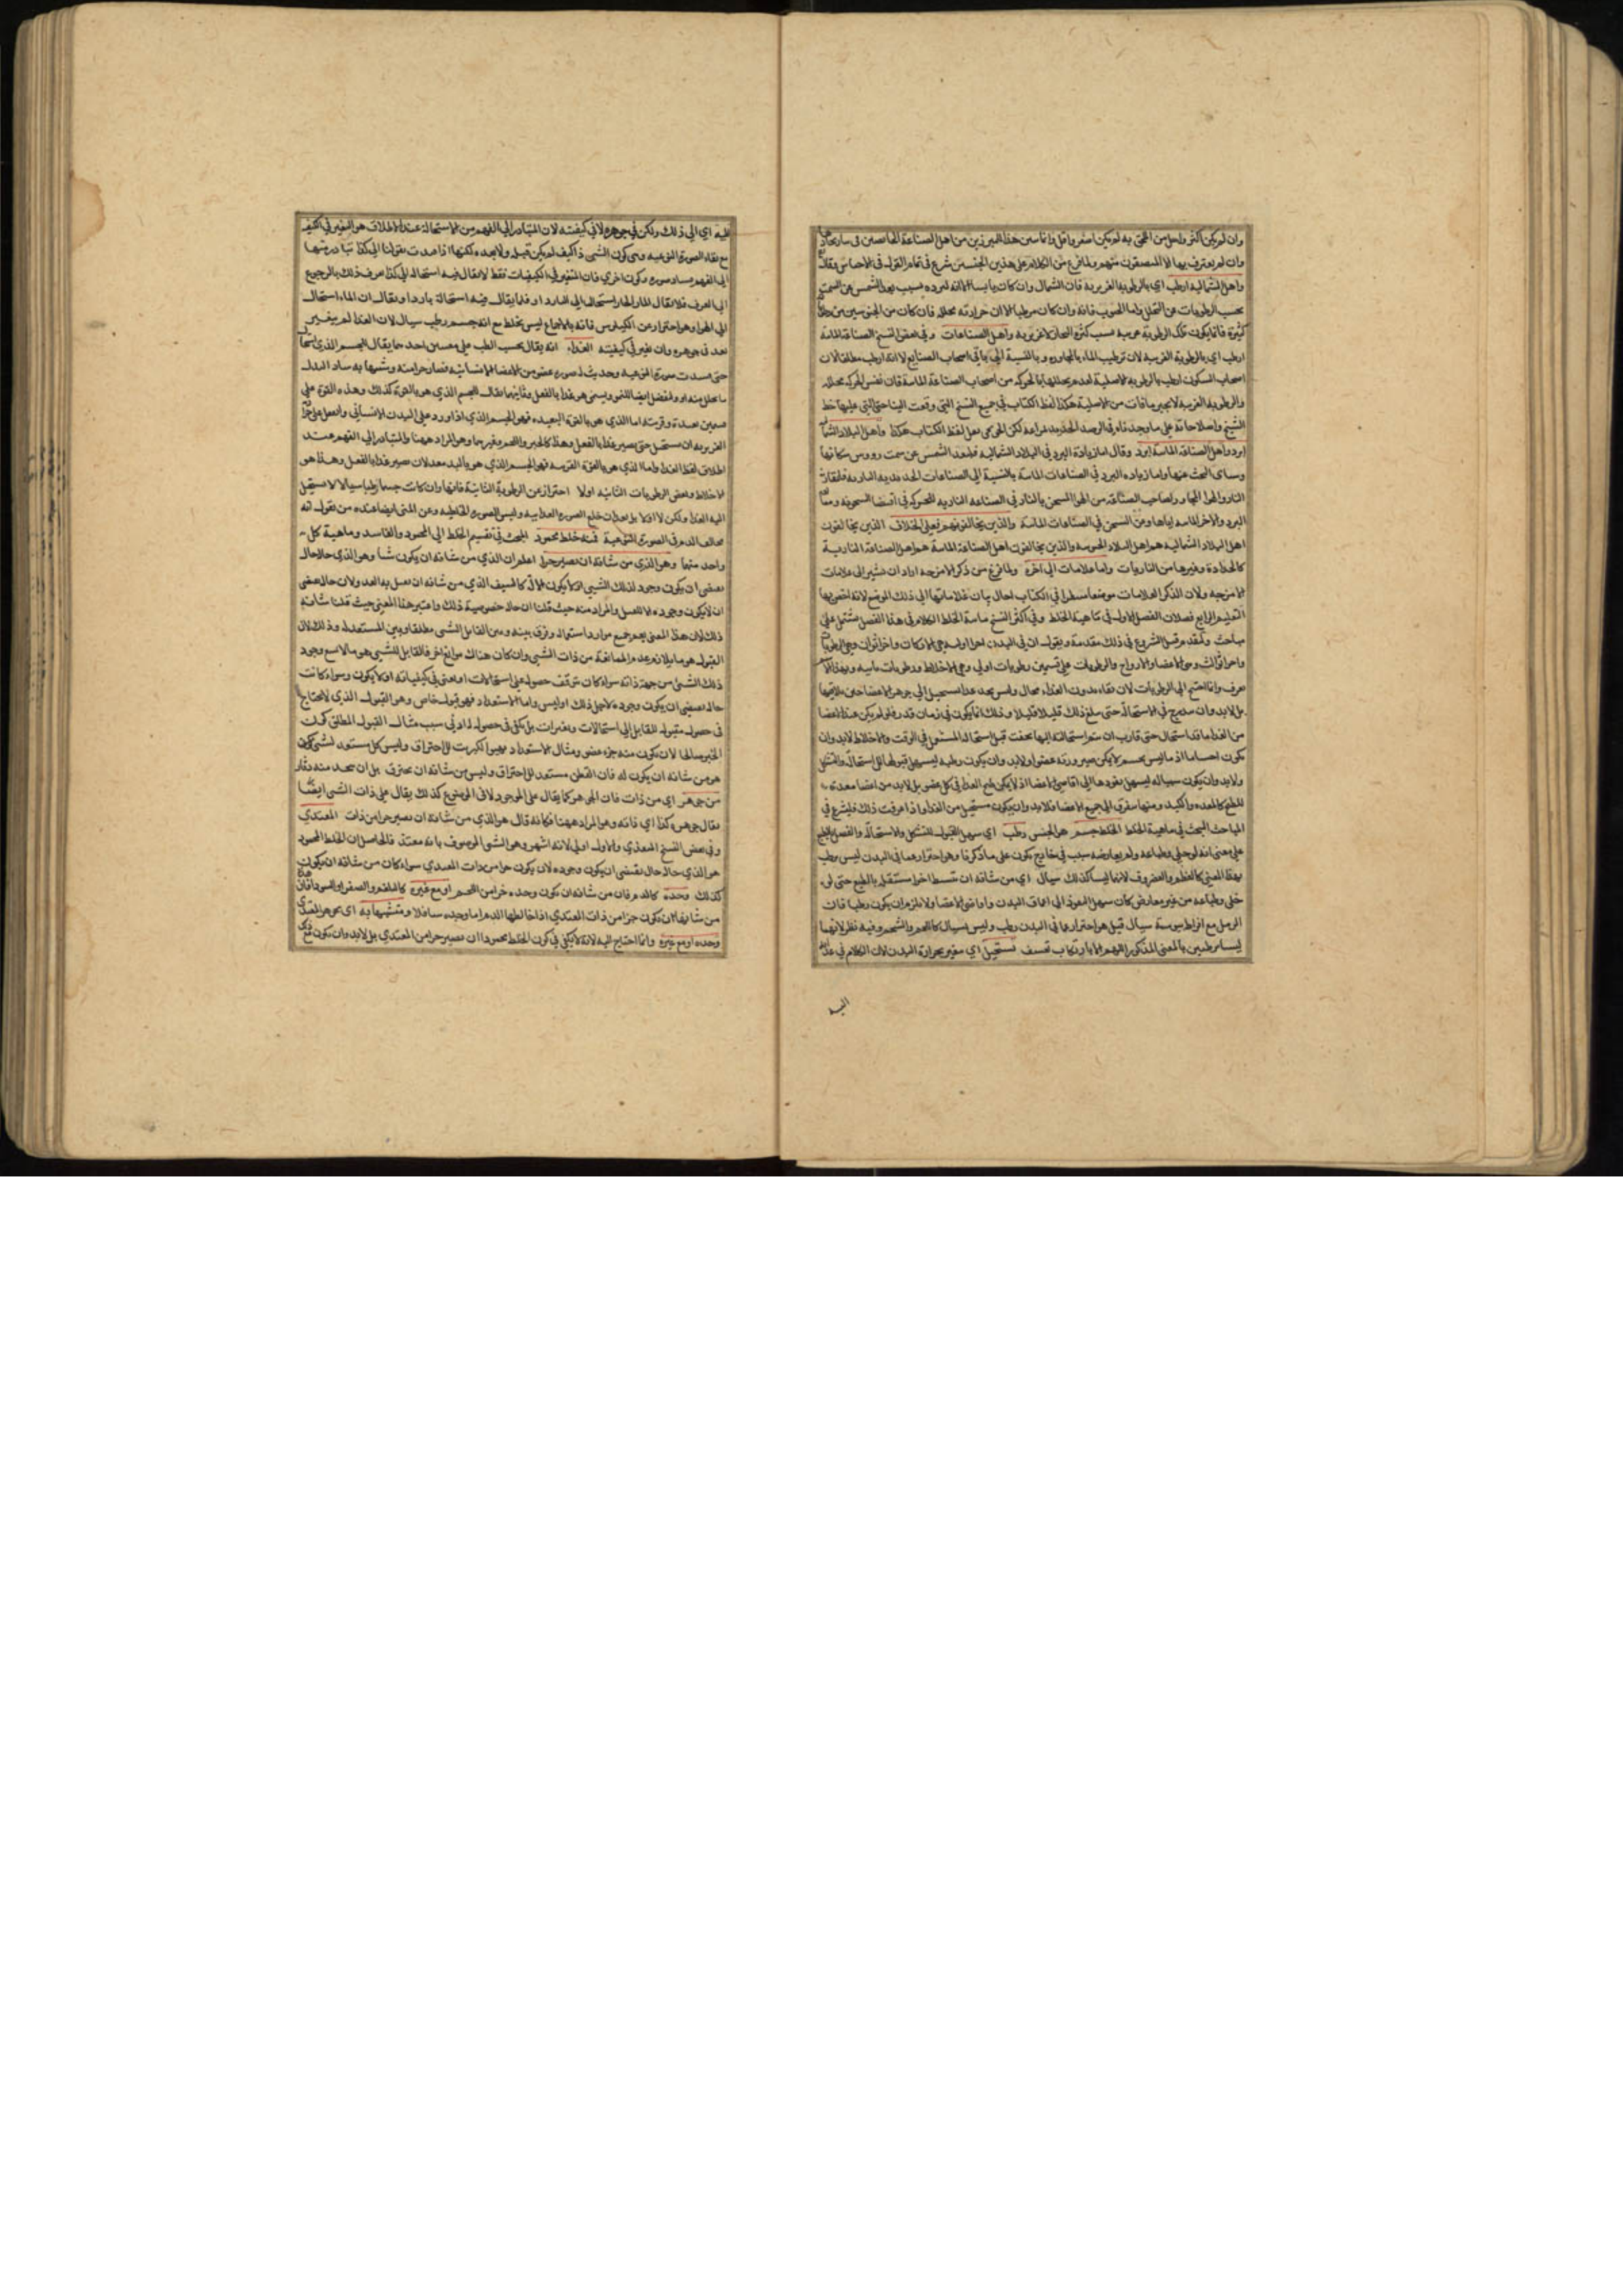 وان لم يكن اكثر ولعل من اللحى به لم يكن اصغر واقل واناسين هذا المبرزين من اهل الصناعة
وان لم يعترف بها الا المنصفون منهم ولما فرغ من الكلام على هذين الجنسين شرع في تمام القول في الاجناس وقال
واهل الشمالية ارطب اي بالرطوبة الغريزية فان الشمال وان كان يابسا الا انه لبرده بسبب بعد الشمس عن السمت
يحبس الرطوبات عن التحلل واما الجنوب فانه وان كان مرطبا الا ان حرارته محللة فان كان من الجنوبيين من
كثيرة فانما يكون تلك الرطوبة غريبة بسبب كثرة البحار لا غريزية واهل الصناعات وفي بعض النسخ الصناعة المائية
ارطب اي بالرطوبة الغريبة لان ترطيب الماء بالمجاورة وبالنسبة الى باقي اصحاب الصنايع لا انه ارطب مطلقا لان
اصحاب السكون ارطب بالرطوبة الاصلية لعدم تحللها بالحركة من اصحاب الصناعة المائية فان نفس الحركة محللة
والرطوبة الغريبة لا تجبر ما فات من الاصلية هكذا لفظ الكتاب في جميع النسخ التي وقعت الينا حتى التي عليها خط
الشيخ واصلاحاته على ما وجدناه في الرصد الجديد بمراغة لكن المسيحي نقل لفظ الكتاب هكذا واهل البلاد
ابرد واهل الصناعة المائية ابرد وقال اما زيادة البرد في البلاد الشمالية فلبعد الشمس عن سمت رووس سكانها
وسياتي البحث عنها واما زيادة البرد في الصناعات المائية بالنسبة الى الصناعات الحديدية النارية
النار والهوا المجاور لصاحب الصناعة من الهوا المسخن بالنار في الصناعة النارية للحركة في اقتضا السخونة
البرد والاخر المائية اياها ومن السخن في الصناعات المائية والذين يخالفونهم فعلى الخلاف الذين يخالفون
اهل البلاد الشمالية هم اهل البلاد الجنوبية والذين يخالفون اهل الصناعة المائية هم اهل الصناعة النارية
كالحدادة وغيرها من الناريات واما علامات الى اخره ولما فرغ من ذكر الامزجة اراد ان يشير الى علامات
الامزجة ولان الذكر العلامات موضعا مسطرا في الكتاب احال بيان علاماتها الى ذلك الموضع لانه اخص بها
التعليم الرابع فصلان الفصل الاول في ماهية الخلط وفي اكثر النسخ مائية الخلط الكلام في هذا الفصل مشتمل على
مباحث ولنقدم قبل الشروع في ذلك مقدمة ونقول ان في البدن اجزا اول وهي الاركان واجزا ثوان وهي الرطوبات
واجزا ثوالث وهي الاعضا والارواح والرطوبات على قسمين رطوبات اولى وهي الاخلاط ورطوبات ثانية
وانما احتيج الى الرطوبات لان بقاء بدون الغذاء محال وليس يجد غذاء يستحيل الى جوهر الاعضا حين
بل لابد وان يتدرج في الاستحالة حتى يبلغ ذلك قليلا قليلا وذلك انما يكون في زمان قدر فلو لم يكن عند الاعضا
من الغذا ما قد استحال حتى قارب ان يتم استحالته اليها لجفت قبل استحالة المستعمل في الوقت والاخلاط لابد وان
تكون اجساما اذ ما ليس بجسم لا يمكن صيرورته عضوا ولابد وان يكون رطبة ليسهل قبولها للاستحالة والتشكل
ولابد وان يكون سيالة ليسهل نفوذها الى اقاصي الاعضا اذ لا يمكن طبخ الغذا في كل عضو بل لابد من اعضا معدة
للطبخ كالمعدة والكبد ومنها يتفرق الى جميع الاعضا فلابد وان يكون مستحيل من الغذا واذا عرفت ذلك فليشرع في
المباحث البحث في ماهية الخلط الخلط جسم هو الجنس رطب اي سهل القبول للتشكل والاستحالة والفصل
على معنى انه لو خلي وطباعه ولم يعارضه سبب في خارج يكون على ما ذكرنا وهو احتراز عما في البدن ليس برطب
بهذا المعنى كالعظم والغضروف لانهما ليسا كذلك سيال اي من شانه ان ينبسط اجزا مستقلة بالطبع حتى لو
خلي وطباعه من غير معارض كان سهل النفوذ الى اعماق البدن واقاصي الاعضا ولا يلزم ان يكون رطبا فان
الرمل مع افراط يبوسته سيال قيل هو احتراز عما في البدن رطب وليس بسيال كاللحم والشحم وفيه نظر لانهما
ليسا برطبين بالمعنى المذكور اللهم الا بارتكاب تعسف يستحيل اي يتغير بحرارة البدن لان الكلام في
اليه
اليه اي الى ذلك ولكن في جوهره لا في كيفيته لان المتبادر الى الفهم من الاستحالة عند الاطلاق هو التغير في الكيف
مع بقاء الصورة النوعية وهي كون الشي ذا كيف لم يكن قبله ولا بعده لكنها اذا عديت بقولنا الى كذا تبادر منها
الى الفهم فساد صورة وكون اخرى فان المتغير في الكيفيات فقط لا يقال فيه استحال الى كذا يعرف ذلك بالرجوع
الى العرف فلا يقال الماء الحار استحال الى البارد او قلما يقال فيه استحالة باردا ويقال ان الماء استحال
الى الهوا وهو احتراز عن الكيلوس فانه بالاجماع ليس بخلط مع انه جسم رطب سيال لان الغذا لم يتغير
بعد في جوهره وان تغير في كيفيته الغذاء انه يقال بحسب الطب على معنيين احدهما يقال للجسم الذي
حتى فسدت صورته النوعية وحدثت له صورة عضو من الاعضا الانسانية فصار جزا منه وشبيها به سادا لبدل
ما تحلل منه او لفضل ايضا للنمو ويسمى هو غذا بالفعل وثانيهما يقال للجسم الذي هو بالقوة كذلك وهذه القوة على
قسمين بعيدة وقريبة اما الذي هو بالقوة البعيدة فهو الجسم الذي اذا ورد على البدن الانساني وانفعل عن
الغريزية ان يستحيل حتى يصير غذا بالفعل وهذا كالخبز واللحم وغيرهما وهو المراد ههنا والمتبادر الى الفهم عند
اطلاق لفظ الغذا واما الذي هو بالقوة القريبة فهو الجسم الذي هو بالبدن معد لان يصير غذا بالفعل وهذا هو
الاخلاط وبعض الرطوبات الثانية اولا احتراز عن الرطوبة الثانية فانها وان كانت جسما رطبا سيالا يستحيل
اليه الغذا ولكن لا اولا بل بعد ان خلع الصورة الغذاييه ولبس الصورة الخلطية وعن المني ايضا عند من يقول انه
مخالف الدم في الصورة النوعية فمنه خلط محمود البحث في تقسيم الخلط الى المحمود والفاسد وماهية كل
واحد منهما وهو الذي من شانه ان يصير جزا اعلم ان الذي من شانه ان يكون شيا وهو الذي حاله حال
يقتضي ان يكون وجود لذلك الشي او لا يكون الا له كالسيف الذي من شانه ان يعمل به العدو لان حاله يقتضي
ان لا يكون وجوده الا للعمل والمراد منه حيث قلنا ان حاله خصوصية ذلك واعتبر هذا المعنى حيث قلنا شانه
ذلك لان هذا المعنى يعم جميع موارد استعماله وفرق بينه وبين القابل للشي مطلقا وبين المستعد له وذلك لان
القبول هو ما يلازم عدم الممانعة من ذات الشي وان كان هناك موانع اخر فالقابل للشي هو ما لا يمنع وجود
ذلك الشي من جهة ذاته سواء كان يتوقف حصوله على استحالات او يعنى في كيفياته او لا يكون وسواء كانت
حاله يقتضي ان يكون وجوده لاجل ذلك او ليس واما الاستعداد فهو قبول خاص وهو القبول الذي لا يحتاج
في حصول مقبوله للقابل الى استحالات وتغيرات بل يكفي في حصوله له ادنى سبب مثال القبول المطلق كون
الخبز صالحا لان يكون منه جزء عضو ومثال الاستعداد تهيوا الكبريت للاحتراق وليس كل مستعد لشي يكون
هو من شانه ان يكون له فان القطن مستعد للاحتراق وليس من شانه ان يحترق بل ان يتخذ منه دثار
من جوهر اي من ذات فان الجوهر كما يقال على الموجود لا في الموضوع كذلك يقال على ذات الشي ايضا
يقال جوهره كذا اي ذاته وهو المراد ههنا فكانه قال هو الذي من شانه ان يصير جزا من ذات المغتذي
وفي بعض النسخ المغذي والاول اولى لانه اشهر وهو الشي الموصوف بانه مغتذ فالحاصل ان الخلط المحمود
هو الذي حاله حال يقتضي ان يكون وجوده لان يكون جزا من ذات المغتذي سواء كان من شانه ان يكون
كذلك وحده كالدم فان من شانه ان يكون وحده جزا من اللحم او مع غيره كالبلغم والصفرا والسودا فان
من شانها ان يكون جزا من ذات المغتذي اذا خالطها الدم اما وحده سا فلا ومتشبها به اي بجوهر المغتذي
وحده او مع غيره وانما احتاج اليه لانه لا يكفي في كون الخلط محمودا ان يصير جزا من المغتذي بل لابد وان يكون مع